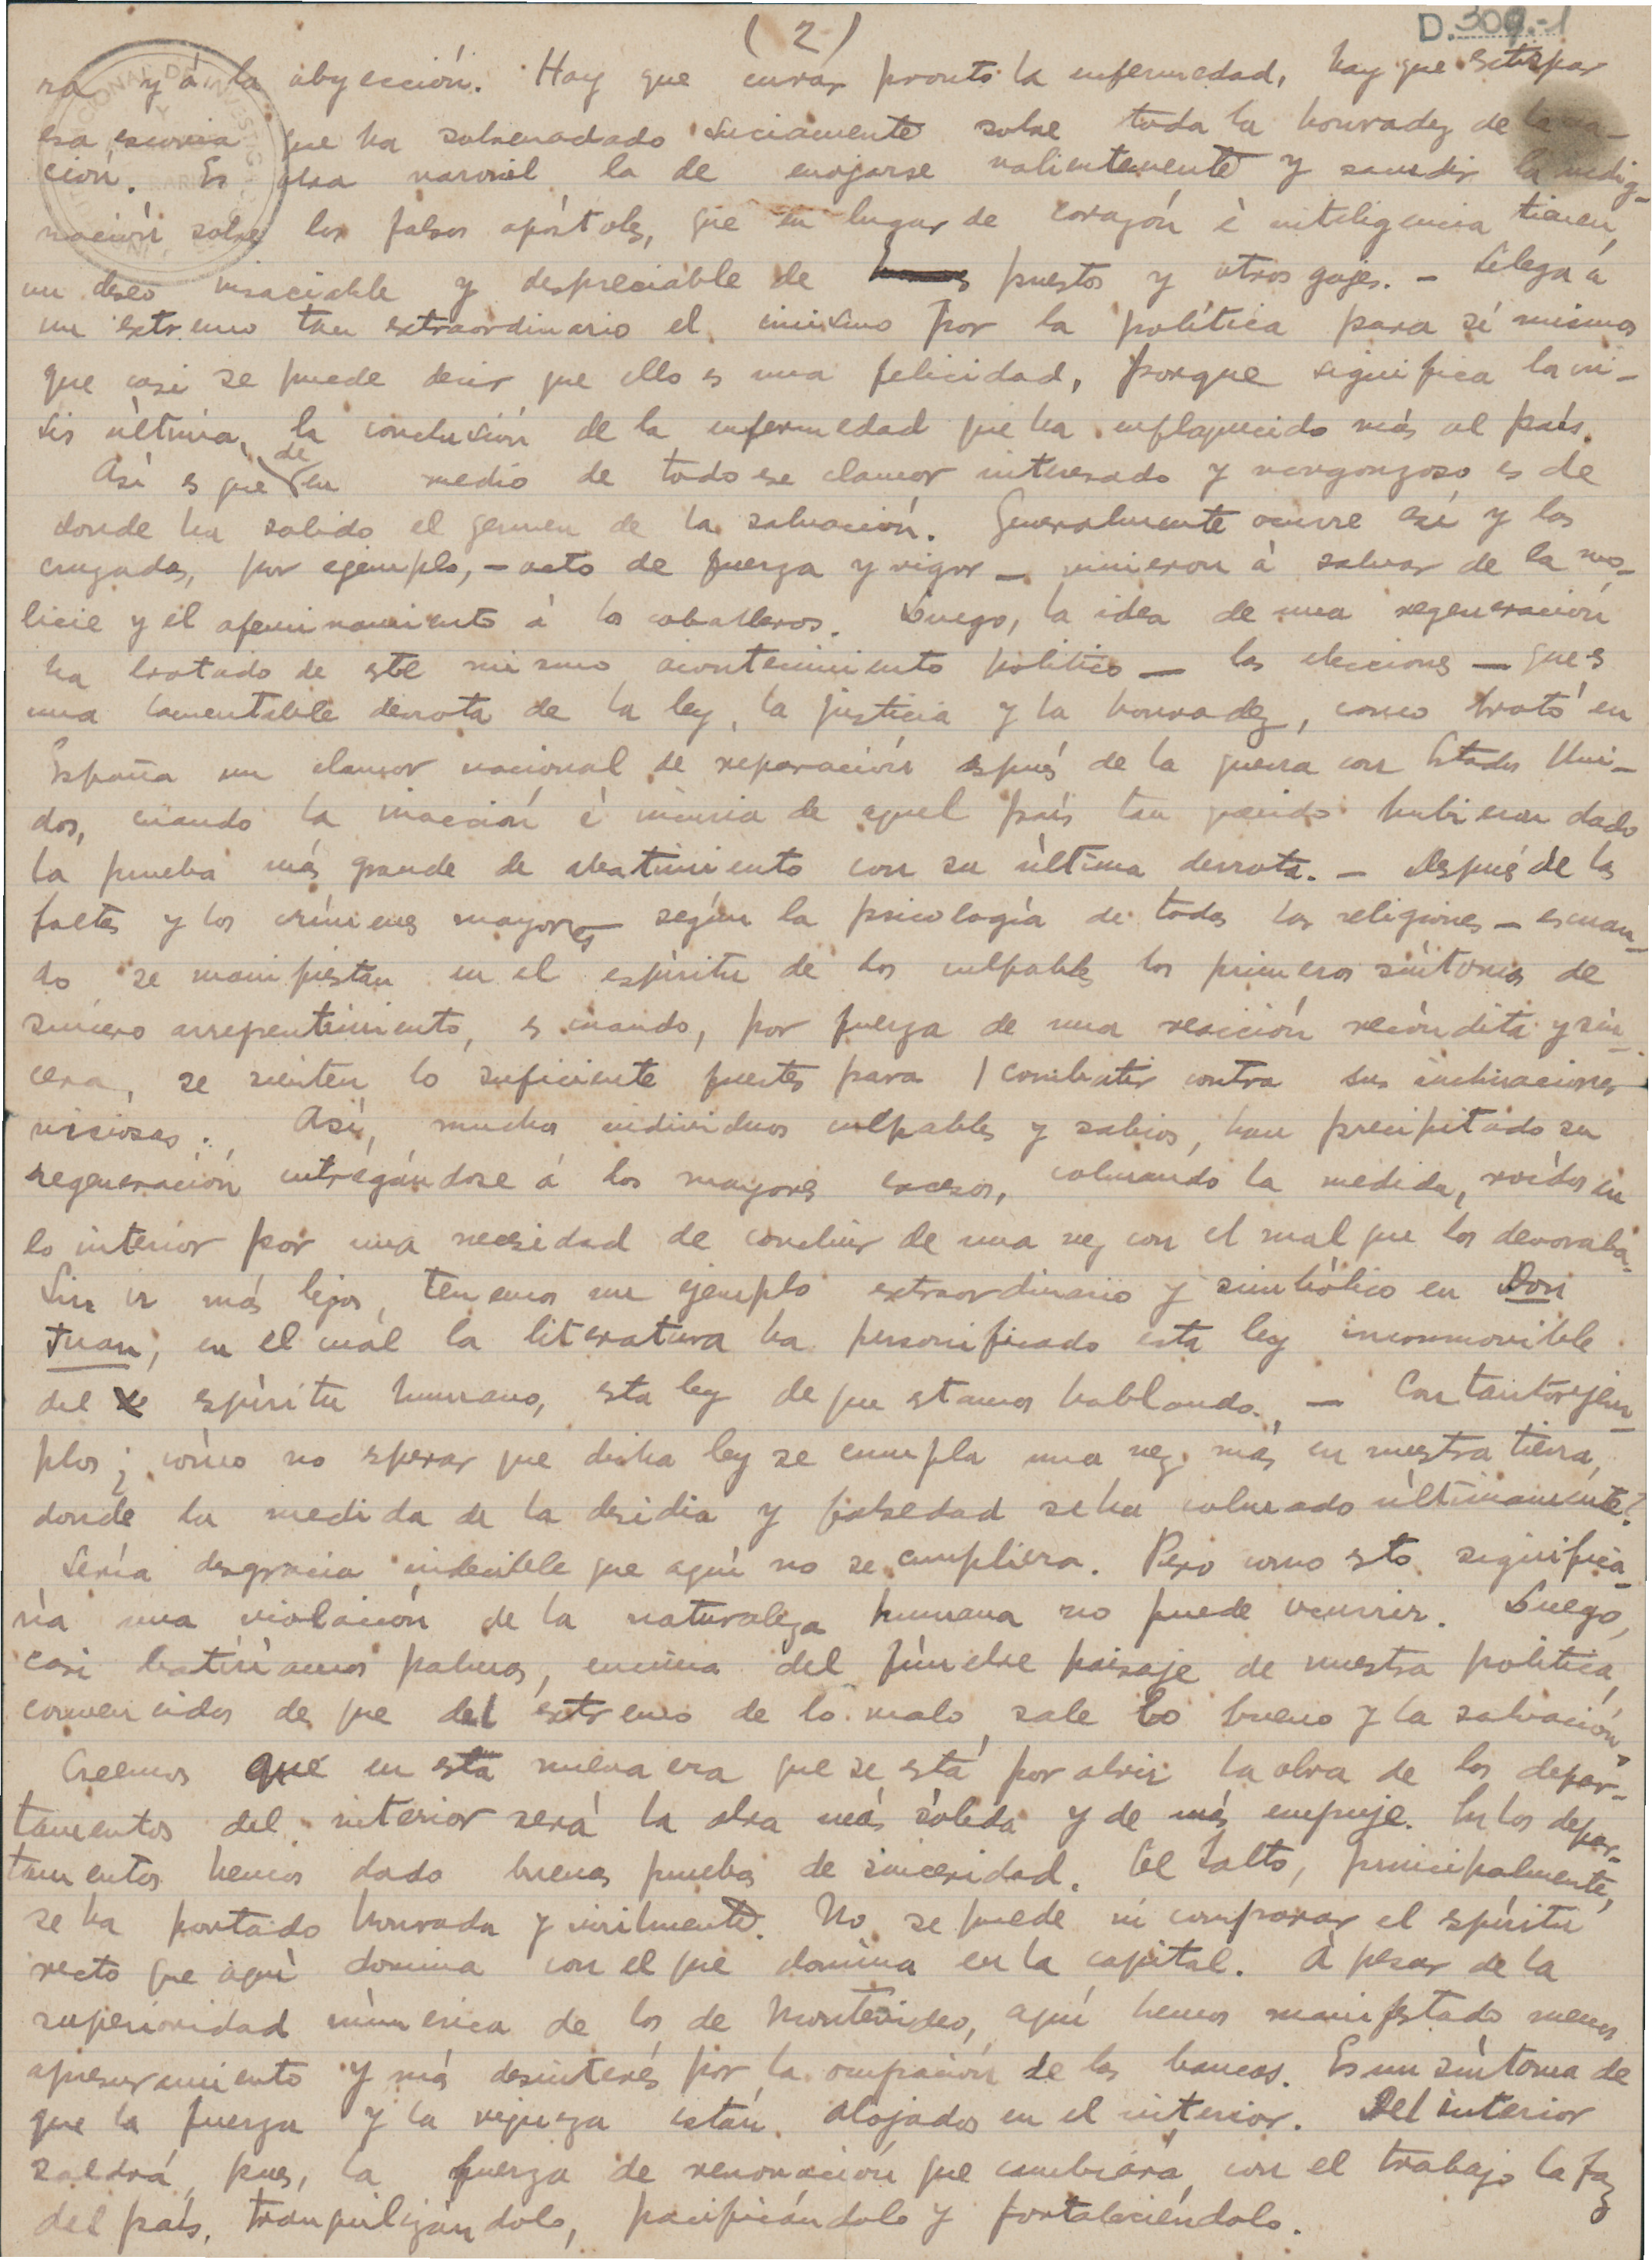 (2)
D.309.-1
ra y á la abyección. Hay que curar pronto la enfermedad, hay que extirpar
esa escoria que ha sobrenadado suciamente sobre toda la honradez de la na-
ción. Es obra varonil la de enojarse valientemente y sacudir la indig-
nación sobre los falsos apóstoles, que en lugar de corazón é inteligencia tienen
un deseo insaciable y despreciable de puestos y otros gajes. – Llega á
un extremo tan extraordinario el cinismo por la política para sí mismos
que casi se puede decir que ello es una felicidad, porque significa la cri-
sis última, la conclusión de la enfermedad que ha enflaquecido más al país.
Así es que de en medio de todo ese clamor interesado y vergonzoso es de
donde ha salido el germen de la salvación. Generalmente ocurre así y las
cruzadas, por ejemplo, – acto de fuerza y vigor – vinieron á salvar de la mo-
licie y el afeminamiento á los caballeros. Luego, la idea de una regeneración
ha brotado de este mismo acontecimiento político – las elecciones – que es
una lamentable derrota de la ley, la justicia y la honradez, como brotó en
España un clamor nacional de reparación espués de la guerra con Estados Uni-
dos, cuando la inacción é incuria de aquel país tan querido hubieron dado
la prueba más grande de abatimiento con su última derrota. – Después de las
faltas y los crímenes mayores – según la psicología de todas las religiones – es cuan-
do se manifiestan en el espíritu de los culpables los primeros síntomas de
sincero arrepentimiento, es cuando, por fuerza de una reacción recóndita y sin-
cera, se sienten lo suficiente fuertes para combatir contra sus inclinaciones
viciosas. Así, muchos individuos culpables y sabios, han precipitado su
regeneración entregándose á los mayores excesos, colmando la medida, roídos en
lo interior por una necesidad de concluir de una vez con el mal que los devoraba.
Sin ir más lejos, tenemos un ejemplo extraordinario y simbólico en Don
Juan, en el cuál la literatura ha personificado esta ley inconmovible
del espíritu humano, esta ley de que estamos hablando. – Con tantos ejem-
plos ¿cómo no esperar que dicha ley se cumpla una vez más en nuestra tierra,
donde la medida de la desidia y falsedad se ha colmado últimamente?
Sería desgracia indecible que aquí no se cumpliera. Pero como esto significa-
ría una violación de la naturaleza humana no puede ocurrir. Luego,
casi batiríamos palmas, encima del fúnebre paisaje de nuestra política,
convencidos de que del extremo de lo malo sale lo bueno y la salvación.
Creemos que en esta nueva era que se está por abrir la obra de los depar-
tamentos del interior será la obra más sólida y de más empuje. En los depar-
tamentos hemos dado buenas pruebas de sinceridad. El Salto, principalmente,
se ha portado honrada y virilmente. No se puede ni comparar el espíritu
recto que aquí domina con el que domina en la capital. Á pesar de la
superioridad númerica de los de Montevideo, aquí hemos manifestado menos
apresuramiento y más desinterés por la ocupación de las bancas. Es un síntoma de
que la fuerza y la viveza están alojados en el interior. Del interior
saldrá, pues, la fuerza de renovación que cambiará con el trabajo la faz
del país, tranquilizándolo, pacificándolo y fortaleciéndolo.